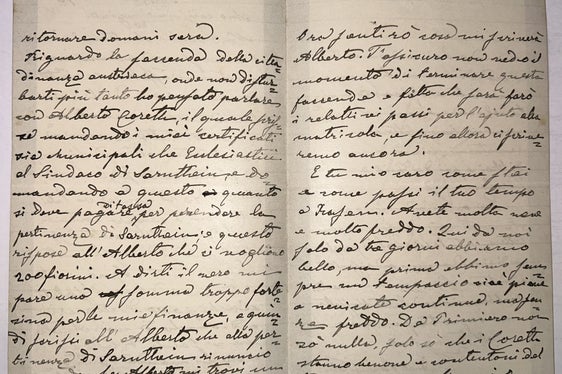 ritornare domani sera.
Riguardo la faccenda della citta=
dinanza austriaca, onde non distur=
barti più tanto ho pensato parlare
con Alberto Coretti, il quale scris=
se mandando i miei certificati
sia Municipali che Eclesiastici
al Sindaco di Sarnthein, e do=
mandando a questo quanto
si deve pagare di tassa per prendere la
pertinenza di Sarnthein, e questo
rispose all'Alberto che ci vogliono
200 fiorini. A dirti il vero mi
pare una somma troppo forte
per le mie finanze, e quin=
di scrissi all'Alberto che alla per=
tinenza di Sarnthein rinuncio
Alberto mi trovi un
Ora sentirò cosa mi scriverà
Alberto. T'assicuro non vedo il
momento di terminare questa
faccenda e fatta che sarà farò
i relativi passi per l'ajuto alla
matricola, e fino allora ci scrive=
remo ancora.
E tu mio caro come stai
e come passi il tuo tempo
a . Avete molta neve
e molto freddo. Qui da noi
solo da tre giorni abbiamo
bello, ma prima ebbimo sem
pre un tempaccio
a nevicato continuo, ma sem
re freddo. Da Primiero no=
so nulla, solo sò che i Coretti
stanno benone e contentoni del